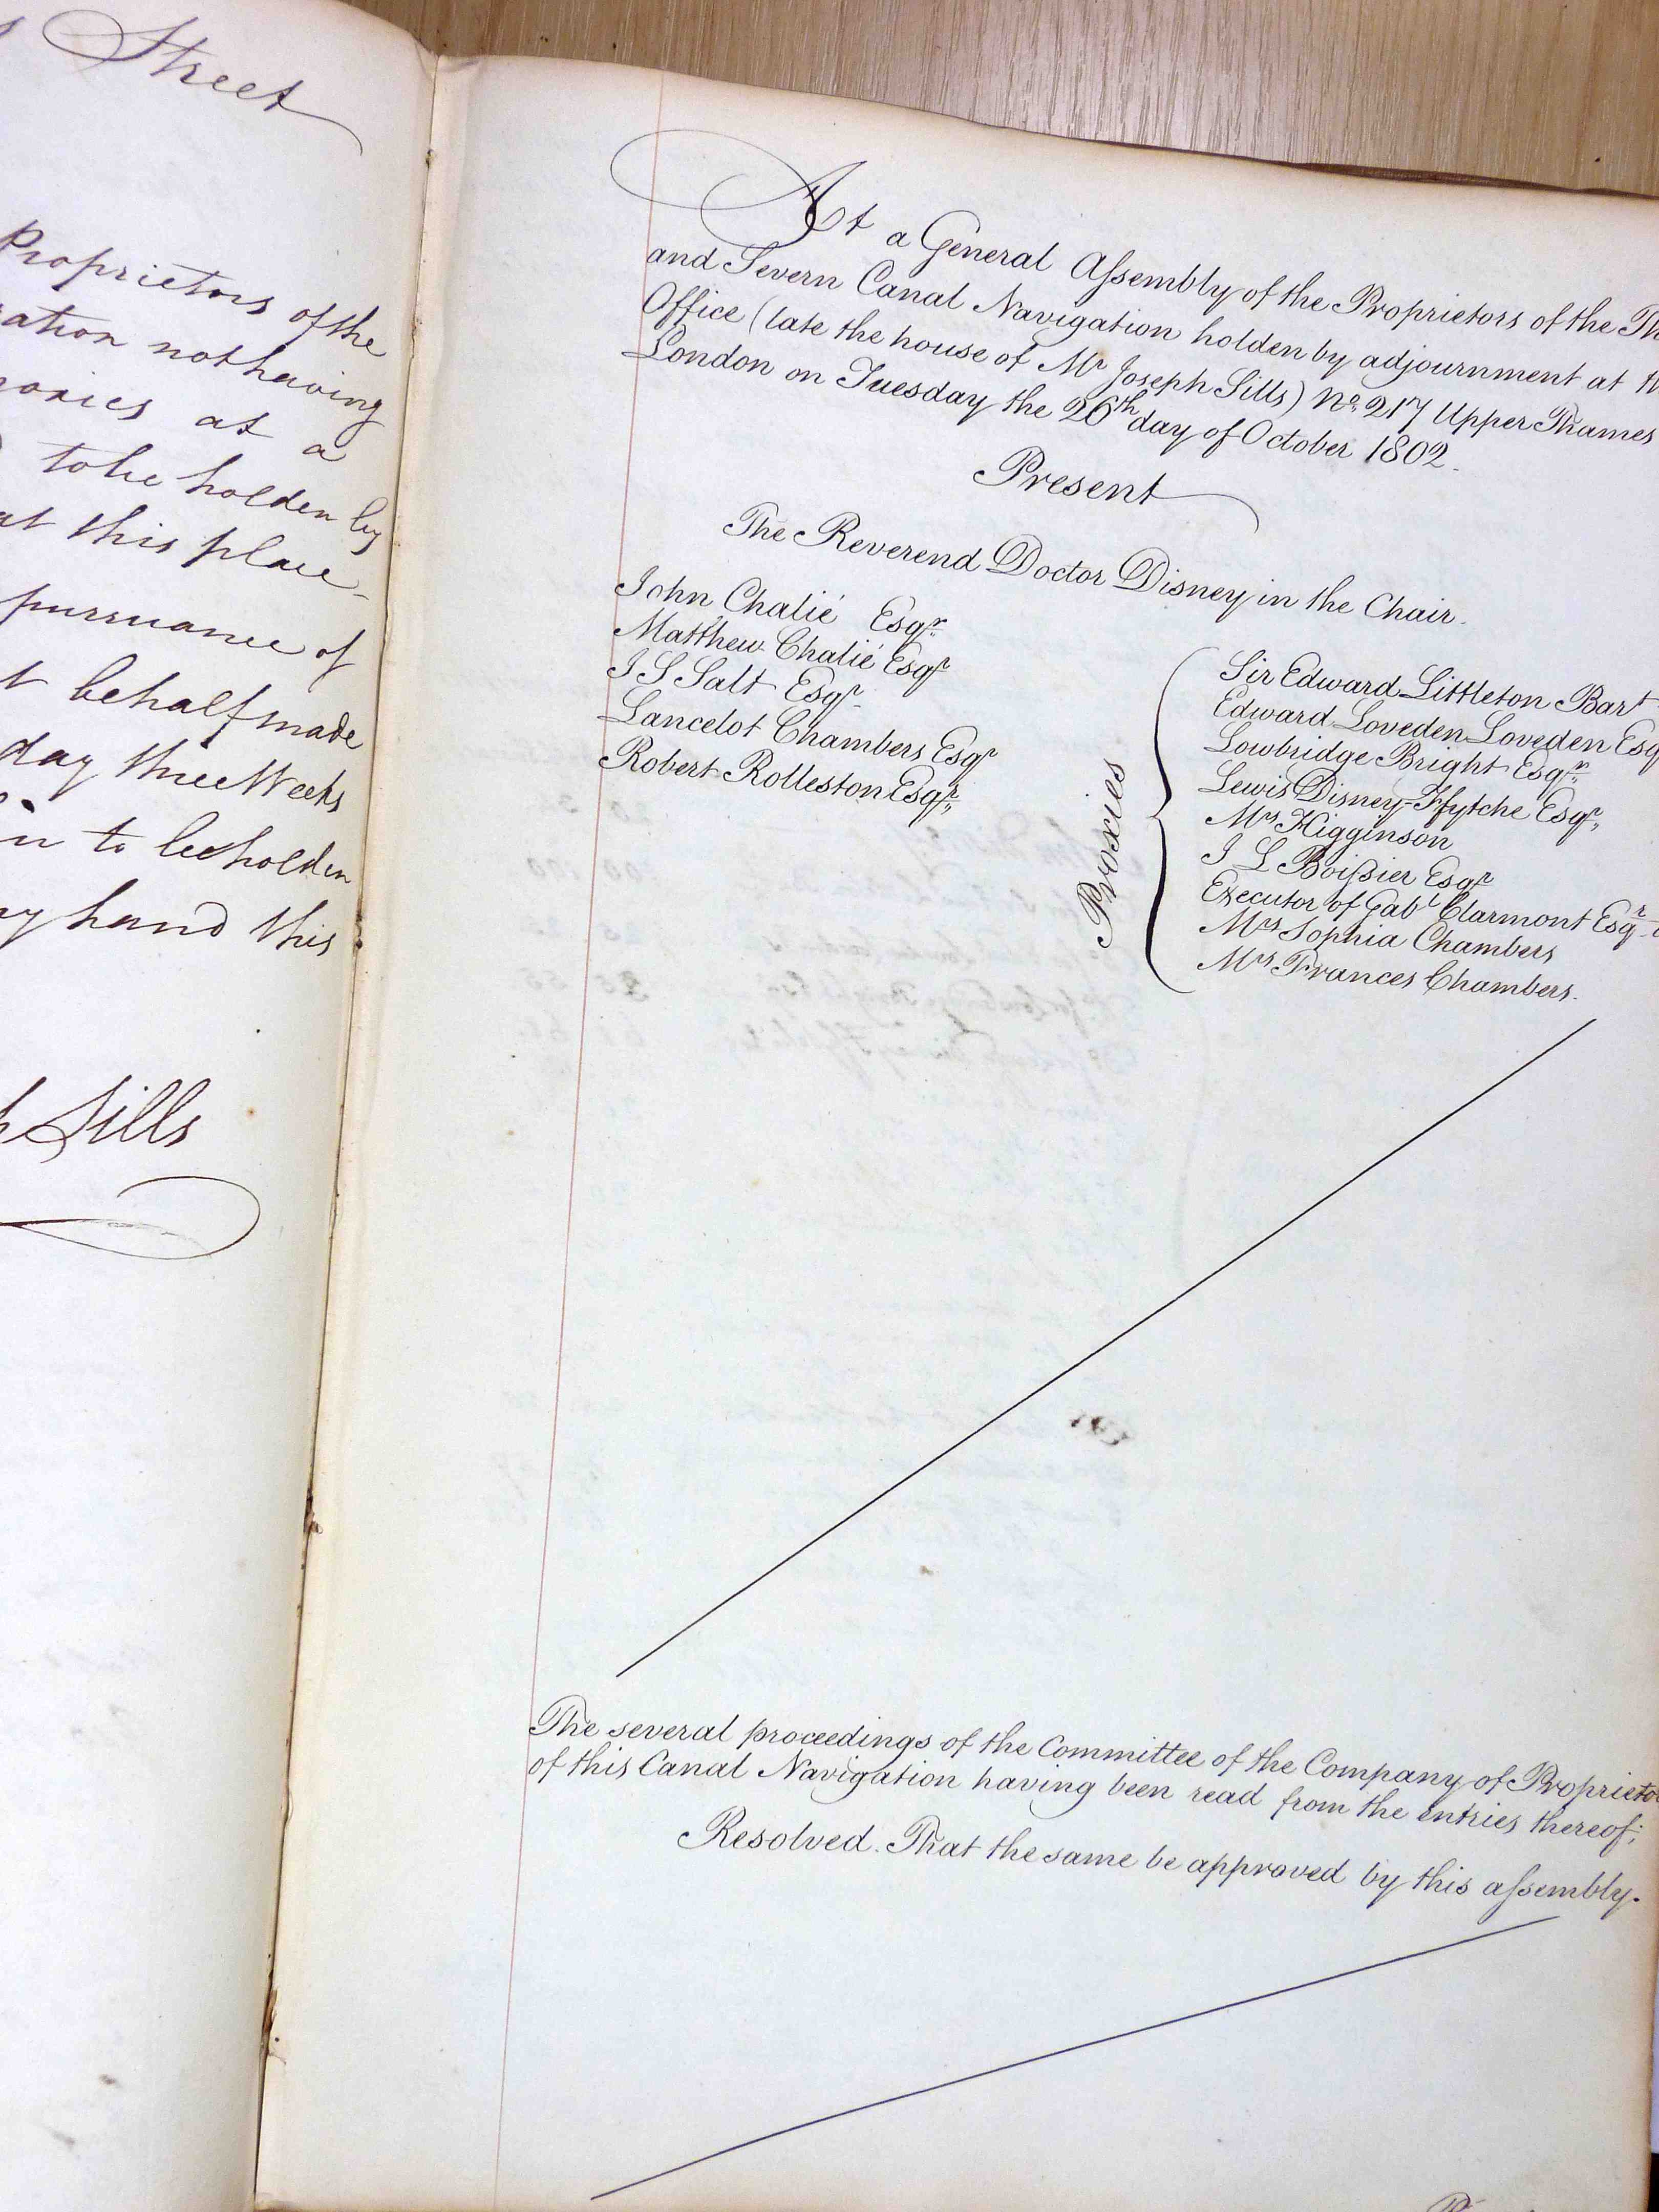 Street
Proprietors of the
ation not having
oxies at a
to be holden by
at this place
pursuance of
t behalf made
day three Weeks
n to be holden
y hand this
h Sills
At a General Aſsembly of the Proprietors of the Th
and Severn Canal Navigation holden by adjournment at th
Office (late the house of Mr Joseph Sills) No. 217 Upper Thames
London on Tuesday the 26th day of October 1802.
Present
The Reverend Doctor Disney in the Chair.
John Chalié Esqr.
Matthew Chalié Esqr
J S Salt Esqr
Lancelot Chambers Esqr
Robert Rolleston Esqr.
Proxies
Sir Edward Littleton Bart
Edward Loveden Loveden Esq
Lowbridge Bright Esqr.
Lewis Disney=Ffytche Esqr.
Mrs Higginson
J L Boiſsier Esqr
Executor of Gabl Clarmont Esqr
Mrs Sophia Chambers
Mrs Frances Chambers.
The several proceedings of the Committee of the Company of Proprieto
of this Canal Navigation having been read from the entries thereof;
Resolved. That the same be approved by this aſsembly.